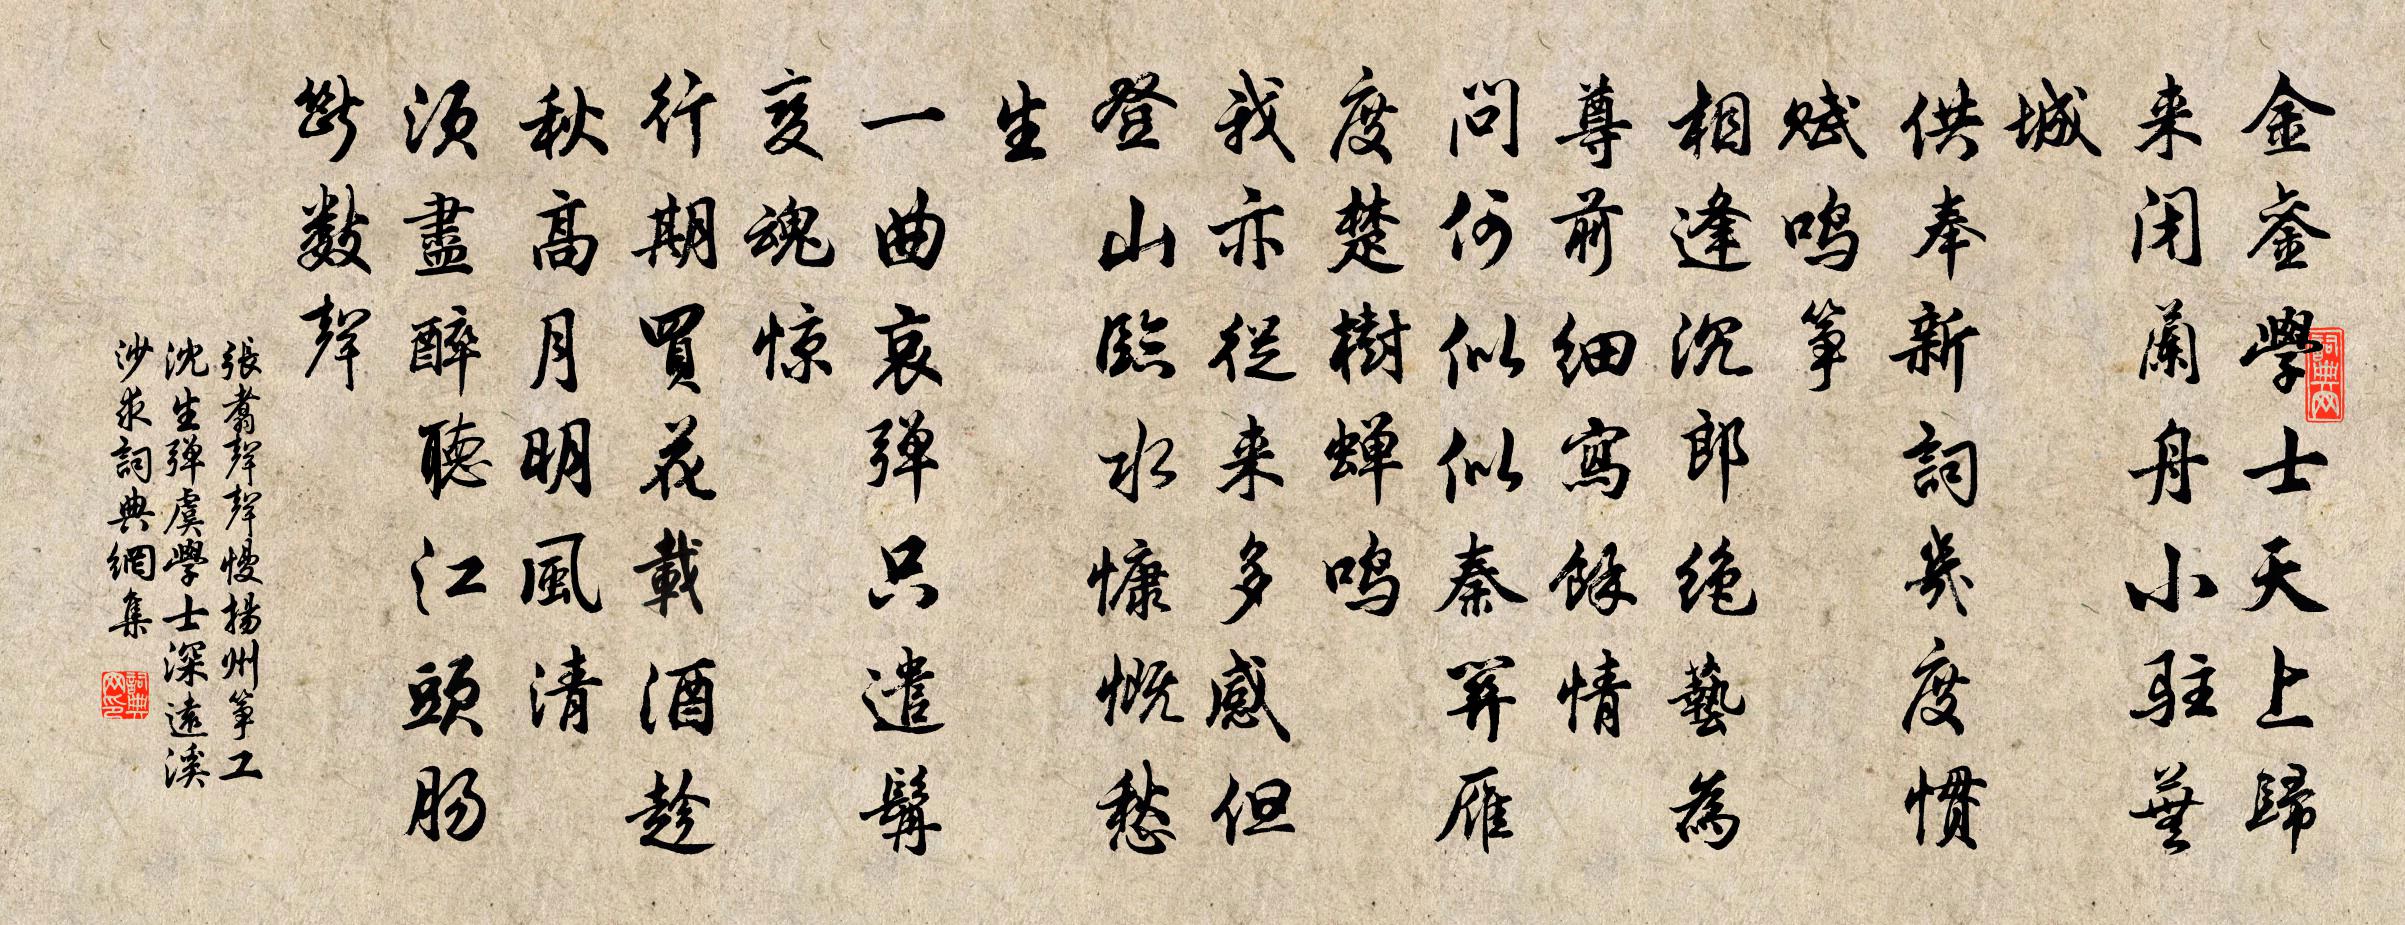 金銮學士天上歸
来闲蘭舟小駐蕪
城
供奉新詞幾度慣
賦鳴筝
相逢沉郎绝藝為
尊前细寫餘情
問何似似秦関雁
度楚樹蝉鳴
我亦從来多感但
登山臨水慷慨愁
生
一曲哀弹只遣鬢
变魂惊
行期買花載酒趁
秋高月明風清
須盡醉聽江頭肠
斷數聲
張翥聲聲慢揚州筝工
沈生弹虞學士深遠溪
沙求詞典網集
詞典网
詞典网印